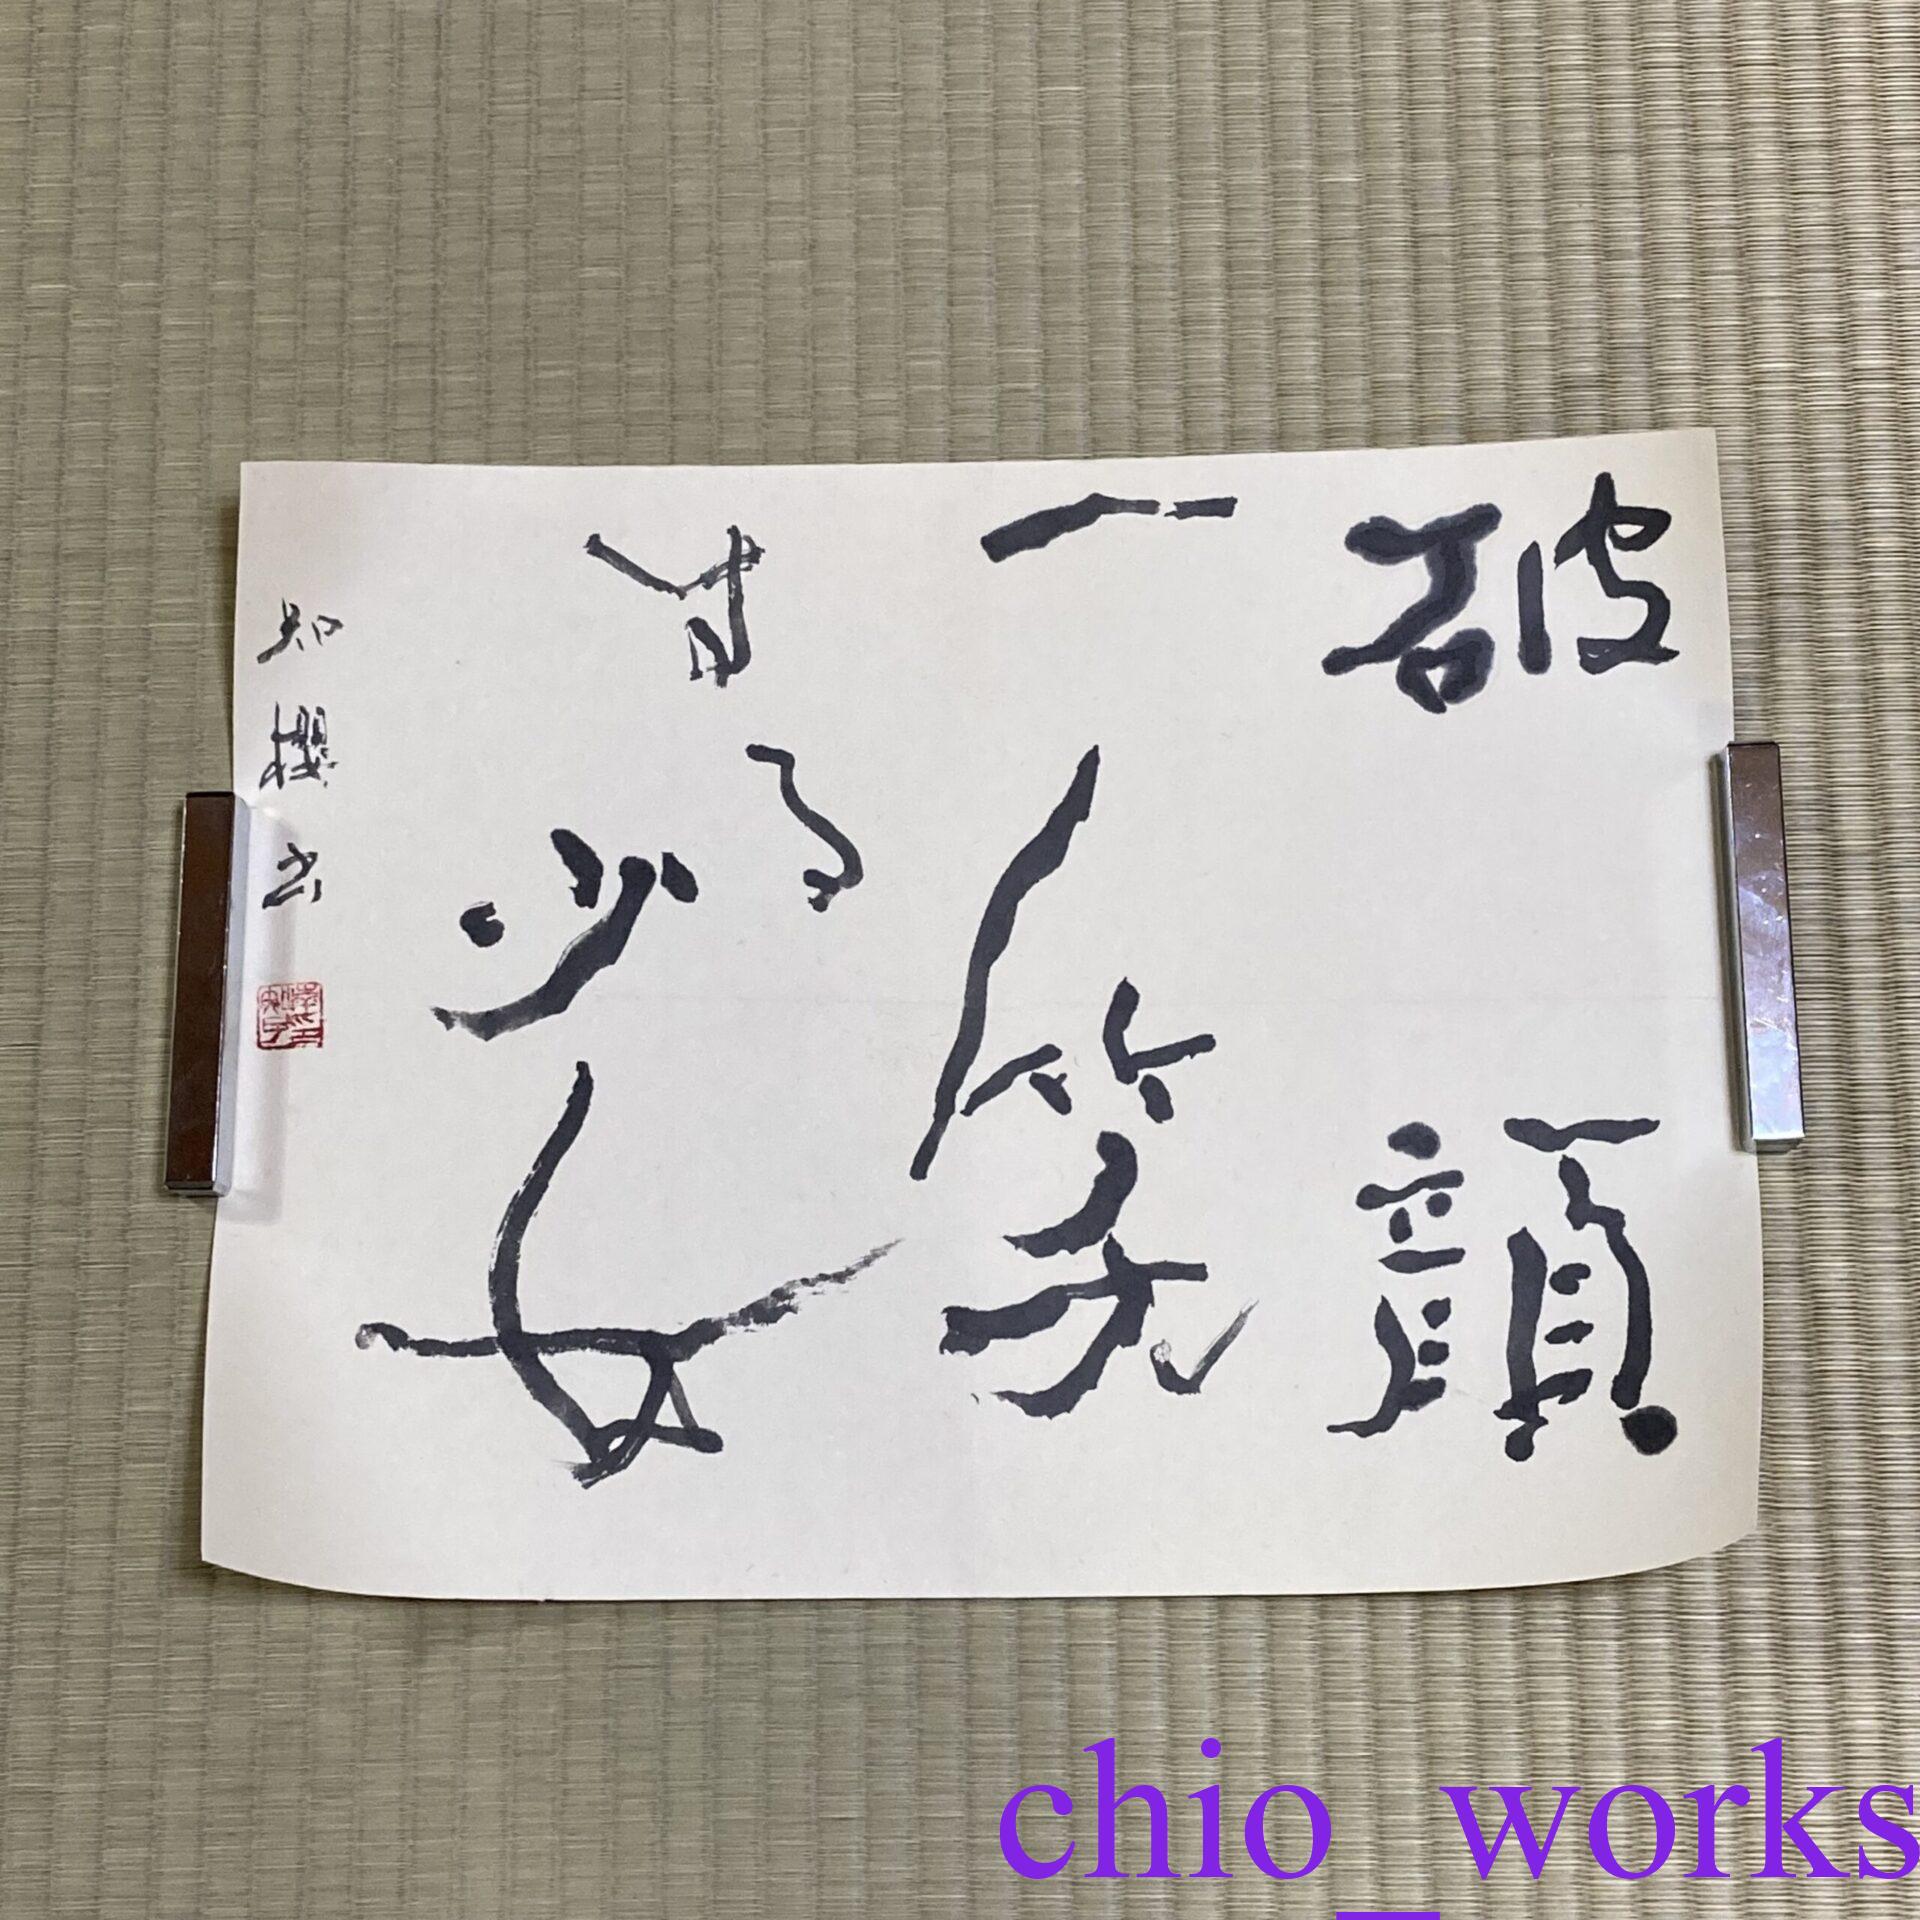 破顔
一笑
する
少女
知櫻書
chio_works